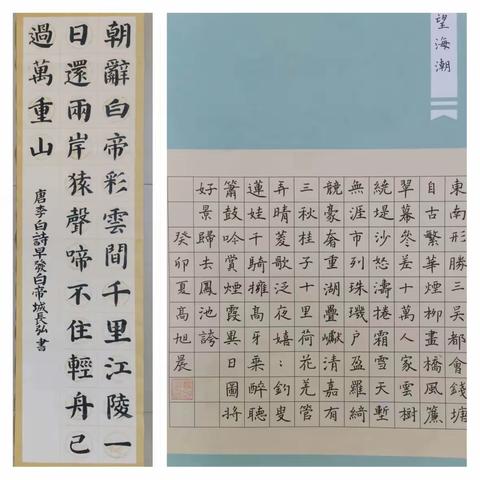 朝辭白帝彩雲間千里江陵一
日還兩岸猿聲啼不住輕舟已
過萬重山
唐李白詩早發白帝城長弘書
望海潮
東南形勝三吳都會錢塘
自古繁華煙柳畫橋風簾
翠幕參差十萬人家雲樹
繞堤沙怒濤捲霜雪天塹
無涯市列珠璣戶盈羅綺
競豪奢重湖疊巘清嘉有
三秋桂子十里荷花羌管
弄晴菱歌泛夜嬉：釣叟
蓮娃千騎擁高牙乘醉聽
簫鼓吟賞煙霞異日圖將
好景歸去鳳池誇
癸卯夏高旭晨